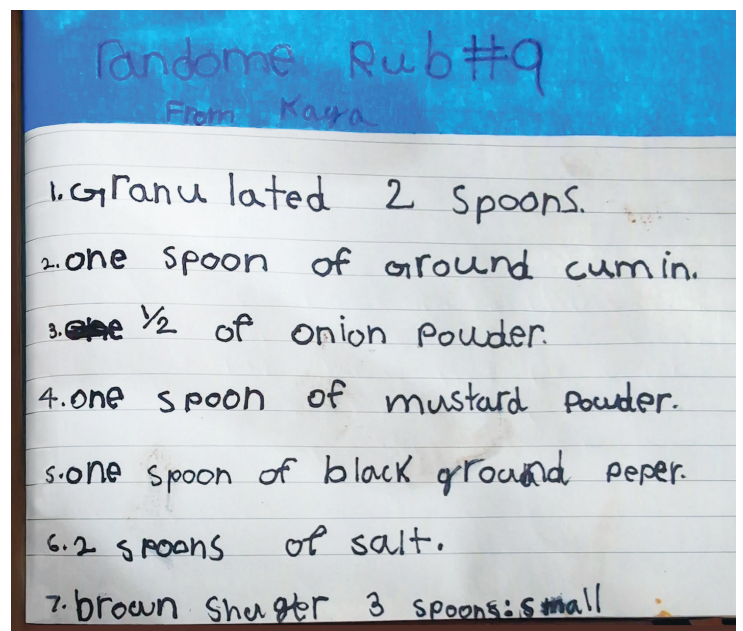 randome Rub#9
From Kaya
1. Granulated 2 spoons.
2. one spoon of Ground cumin.
3. one ½ of onion powder.
4. one spoon of mustard powder.
5. one spoon of black ground peper.
6. 2 spoons of salt.
7. brown shugter 3 spoons: small